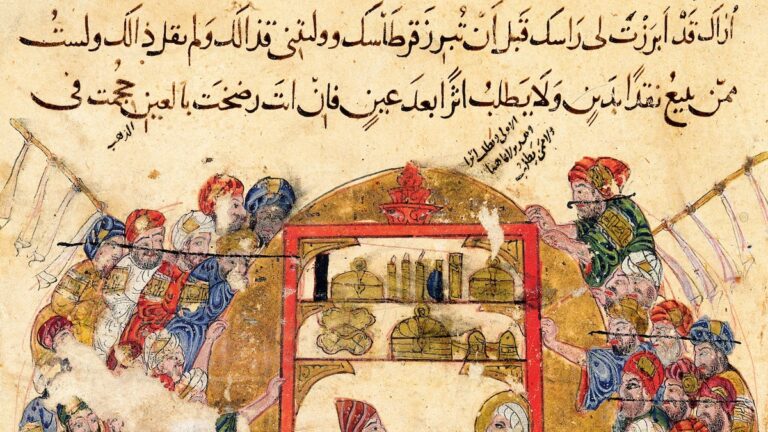 اُرَاكَ قَدْ اَبرَزْتَ لى رَاسكَ قَبلَ اَنْ تُبرزَ قرطَاسكَ وولَيتَنى قذالكَ ولم تقل ذالكَ ولستُ
ممّن يبيعُ نقدًا بدَينٍ وَلَا يَطلبُ اثرًا بعدَ عينٍ فانْ انتَ رضختَ بالعين حجمت فى
الذهب